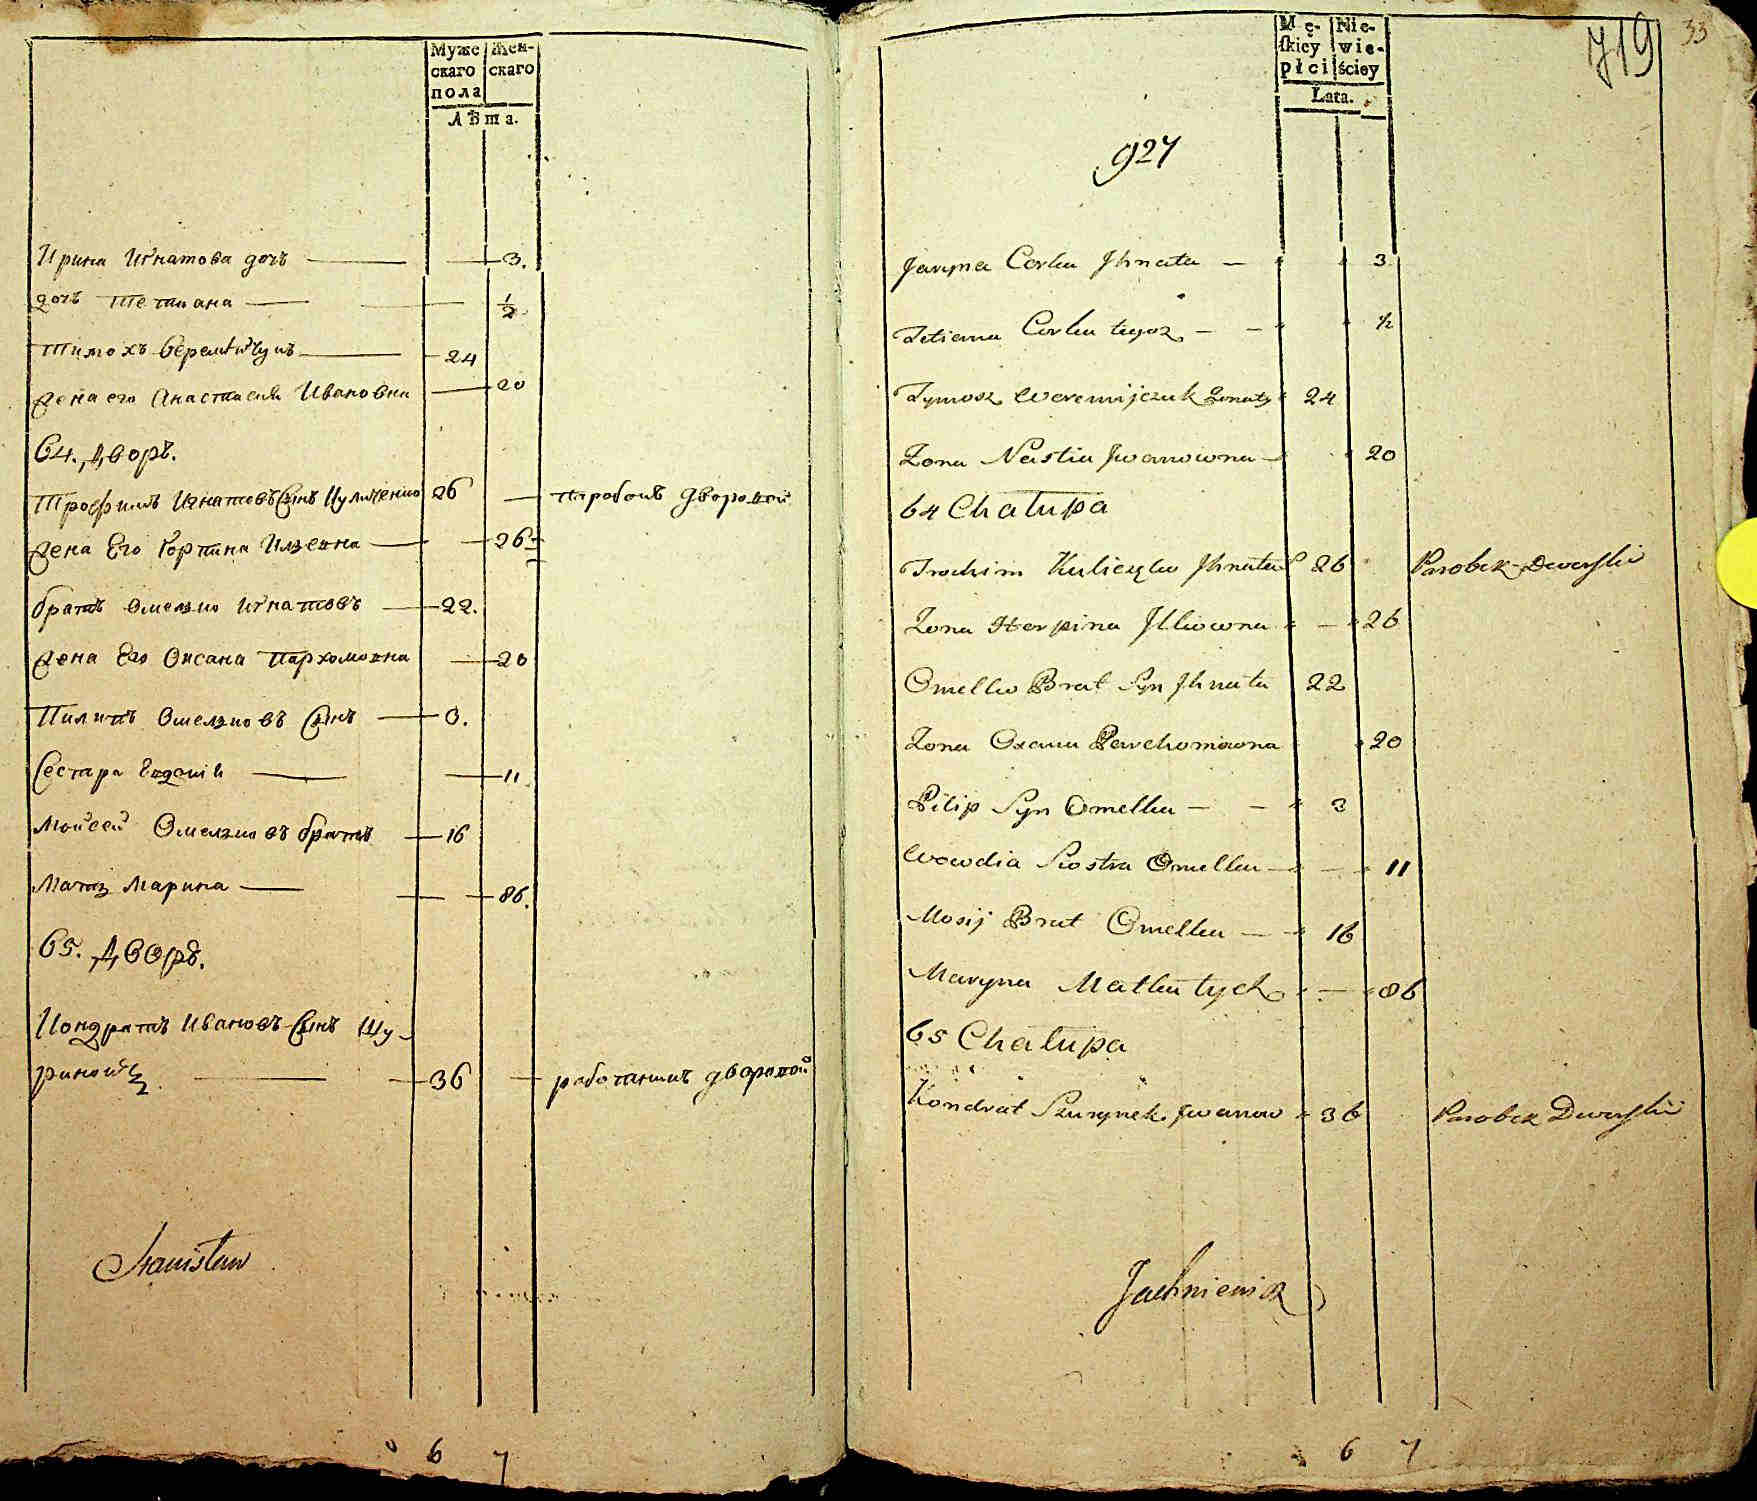 Муже
скаго
пола
Жен-
скаго
Лѣта.
Ирина Игнатова дочь — — 3.
дочь Тетиана — — 1/2
Тимохъ Веремѣйчукъ — 24
Жена его Анастасия Ивановна — 20
64. Дворъ.
Трофимъ Игнатовъ Сынъ Куличенко 26 — паробокъ дворовой
Жена Его Горпина Илкова — 26
братъ Омелко Игнатовъ — 22.
Жена Его Оксана Пархомовна — 20
Пилипъ Омелковъ Сынъ — 3.
Сестра Евдокия — 11
Мойсей Омелковъ братъ — 16
Матъ Марина — 86.
65. Дворъ.
Кондратъ Ивановъ Сынъ Шу-
ринокъ — 36 — работникъ дворовой
Stanisław
6 7
Mę-
skiey
płci
Nie-
wie-
ściey
Lata.
719
33
927
Jaryna Corka Jhnata — 3
Tetiana Corka tegoż — — 1/2
Tymosz Weremijczuk Żonaty 24
Żona Nastia Jwanowna — 20
64 Chałupa
Trochim Jhnata S 26 Parobek Dworski
Żona Horpina Jlkowna — 26
Omelko Brat Syn Jhnata 22
Żona Oxana Parchomowna 20
Pilip Syn Omelka — — 3
Wowdia Siostra Omelka — — 11
Mosij Brat Omelka — 16
Maryna Matka tych — 86
65 Chałupa
Kondrat Szurynek Jwanow 36 Parobek Dworski
Jachniewicz
6 7